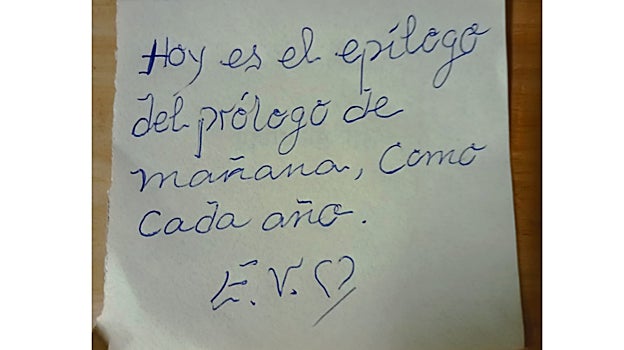 Hoy es el epílogo
del prólogo de
mañana, como
cada año.
E.V.♡